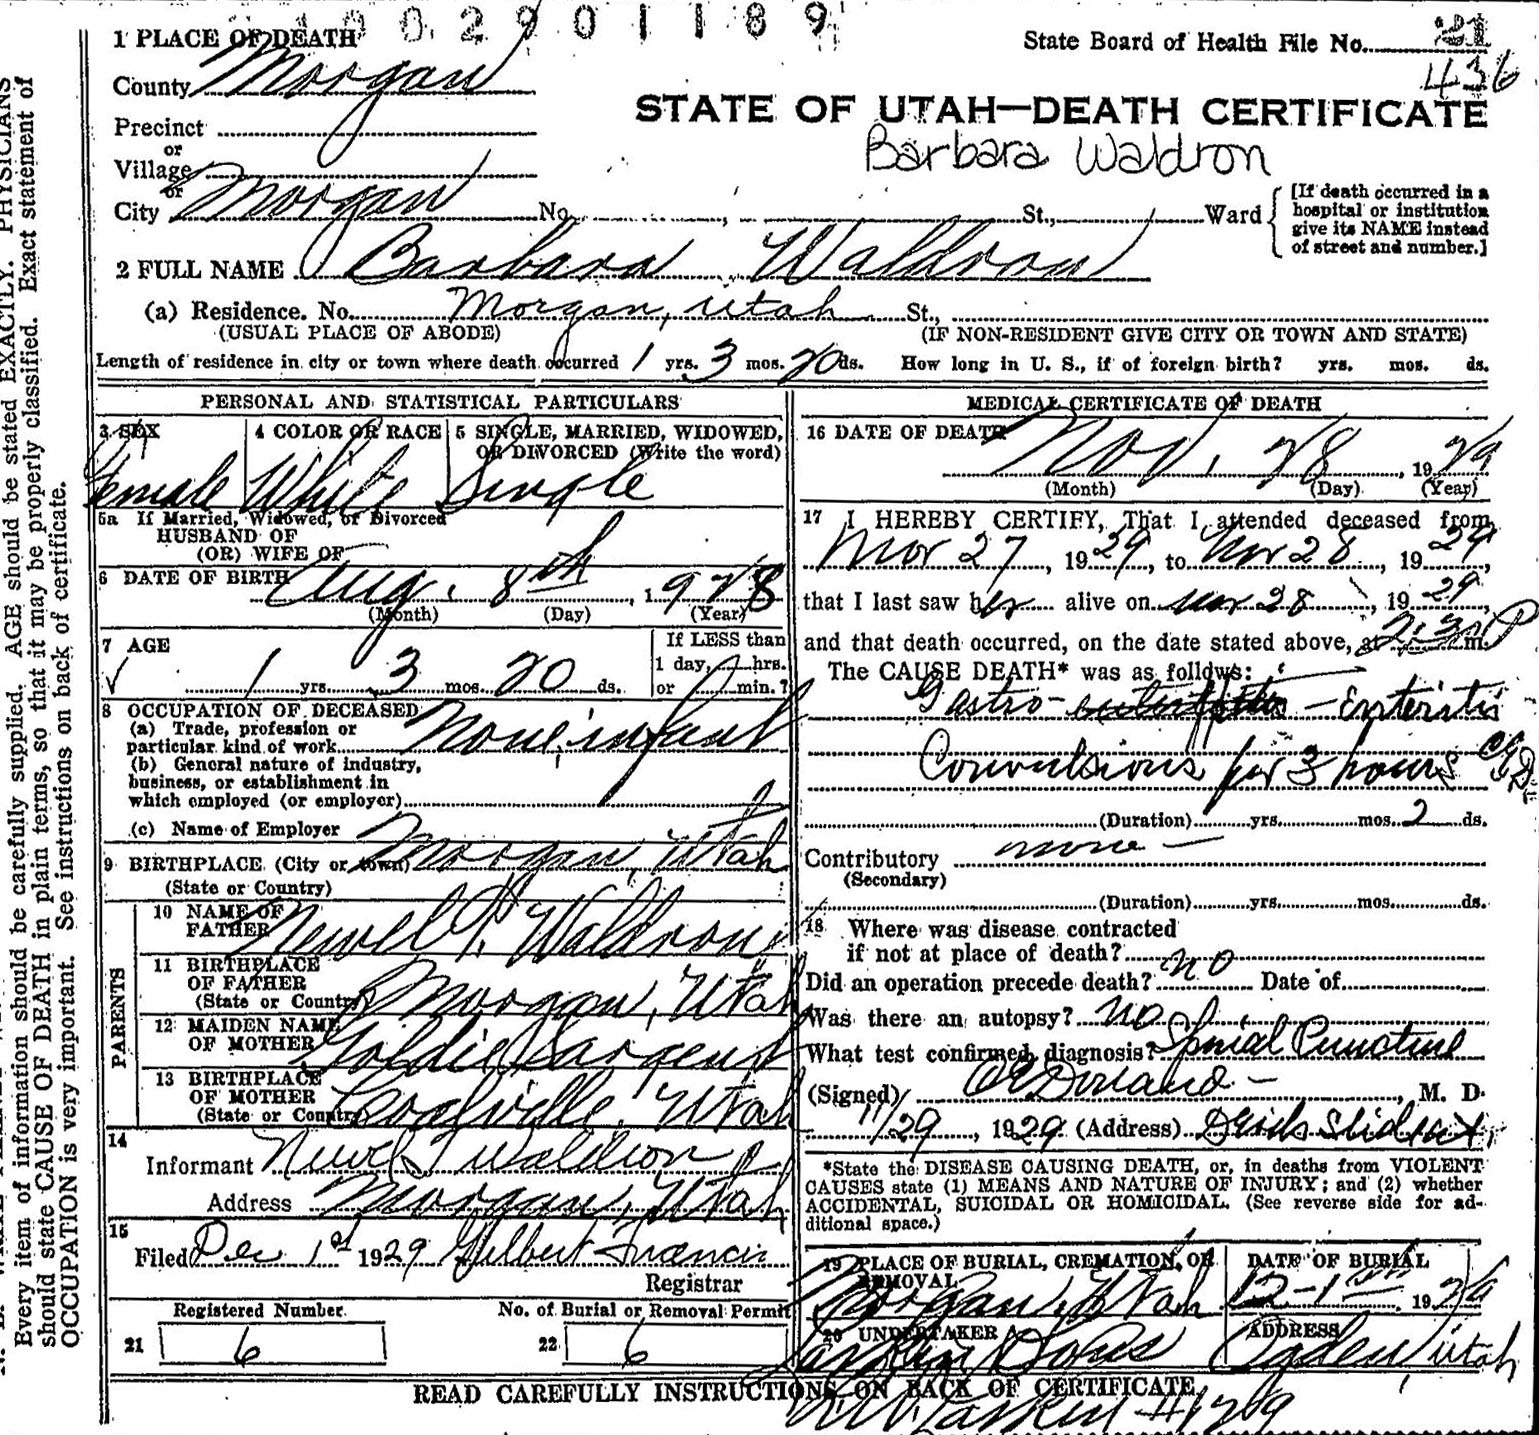 1002901189
1 PLACE OF DEATH
State Board of Health File No. 21
436
County Morgan
STATE OF UTAH—DEATH CERTIFICATE
Precinct
or
Barbara Waldron
Village
or
City Morgan No. St., Ward
[If death occurred in a
hospital or institution
give its NAME instead
of street and number.]
2 FULL NAME Barbara Waldron
(a) Residence. No. Morgan, Utah St.,
(USUAL PLACE OF ABODE) (IF NON-RESIDENT GIVE CITY OR TOWN AND STATE)
Length of residence in city or town where death occurred 1 yrs. 3 mos. 20 ds. How long in U. S., if of foreign birth? yrs. mos. ds.
PERSONAL AND STATISTICAL PARTICULARS
3 SEX
Female
4 COLOR OR RACE
White
5 SINGLE, MARRIED, WIDOWED,
OR DIVORCED (Write the word)
Single
5a If Married, Widowed, or Divorced
HUSBAND OF
(OR) WIFE OF
6 DATE OF BIRTH Aug. 8th, 1928
(Month) (Day) (Year)
7 AGE
1 yrs. 3 mos. 20 ds.
If LESS than
1 day, hrs.
or min.?
8 OCCUPATION OF DECEASED
(a) Trade, profession or
particular kind of work None, infant
(b) General nature of industry,
business, or establishment in
which employed (or employer)
(c) Name of Employer
9 BIRTHPLACE (City or town) Morgan, Utah
(State or Country)
PARENTS
10 NAME OF
FATHER Newel T. Waldron
11 BIRTHPLACE
OF FATHER
(State or Country) Morgan, Utah
12 MAIDEN NAME
OF MOTHER Goldie Sargent
13 BIRTHPLACE
OF MOTHER
(State or Country) Coalville, Utah
14
Informant Newel T Waldron
Address Morgan, Utah
15
Filed Dec 1st 1929 Gilbert Francis
Registrar
Registered Number No. of Burial or Removal Permit
21 6 22 6
MEDICAL CERTIFICATE OF DEATH
16 DATE OF DEATH
Nov. 28, 1929
(Month) (Day) (Year)
17 I HEREBY CERTIFY, That I attended deceased from
Nov 27, 1929, to Nov 28, 1929,
that I last saw her alive on Nov 28, 1929,
and that death occurred, on the date stated above, at 2:30 P m.
The CAUSE DEATH* was as follows:
Gastro- - Enteritis
Convulsions for 3 hours
(Duration) yrs. mos. 2 ds.
Contributory none
(Secondary)
(Duration) yrs. mos. ds.
18 Where was disease contracted
if not at place of death?
Did an operation precede death? no Date of
Was there an autopsy? no
What test confirmed diagnosis? Spinal Puncture
(Signed) , M. D.
11/29, 1929 (Address)
*State the DISEASE CAUSING DEATH, or, in deaths from VIOLENT
CAUSES state (1) MEANS AND NATURE OF INJURY; and (2) whether
ACCIDENTAL, SUICIDAL OR HOMICIDAL. (See reverse side for ad-
ditional space.)
19 PLACE OF BURIAL, CREMATION, OR
REMOVAL
Morgan, Utah
DATE OF BURIAL
12-1st 1929
20 UNDERTAKER
Larkin & Sons
ADDRESS
Ogden, Utah
READ CAREFULLY INSTRUCTIONS ON BACK OF CERTIFICATE
Larkin #129
Every item of information should be carefully supplied. AGE should be stated EXACTLY. PHYSICIANS
should state CAUSE OF DEATH in plain terms, so that it may be properly classified. Exact statement of
OCCUPATION is very important. See instructions on back of certificate.